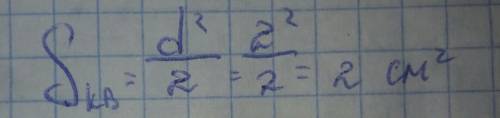 S_кв = d²/2 = 2²/2 = 2 см²